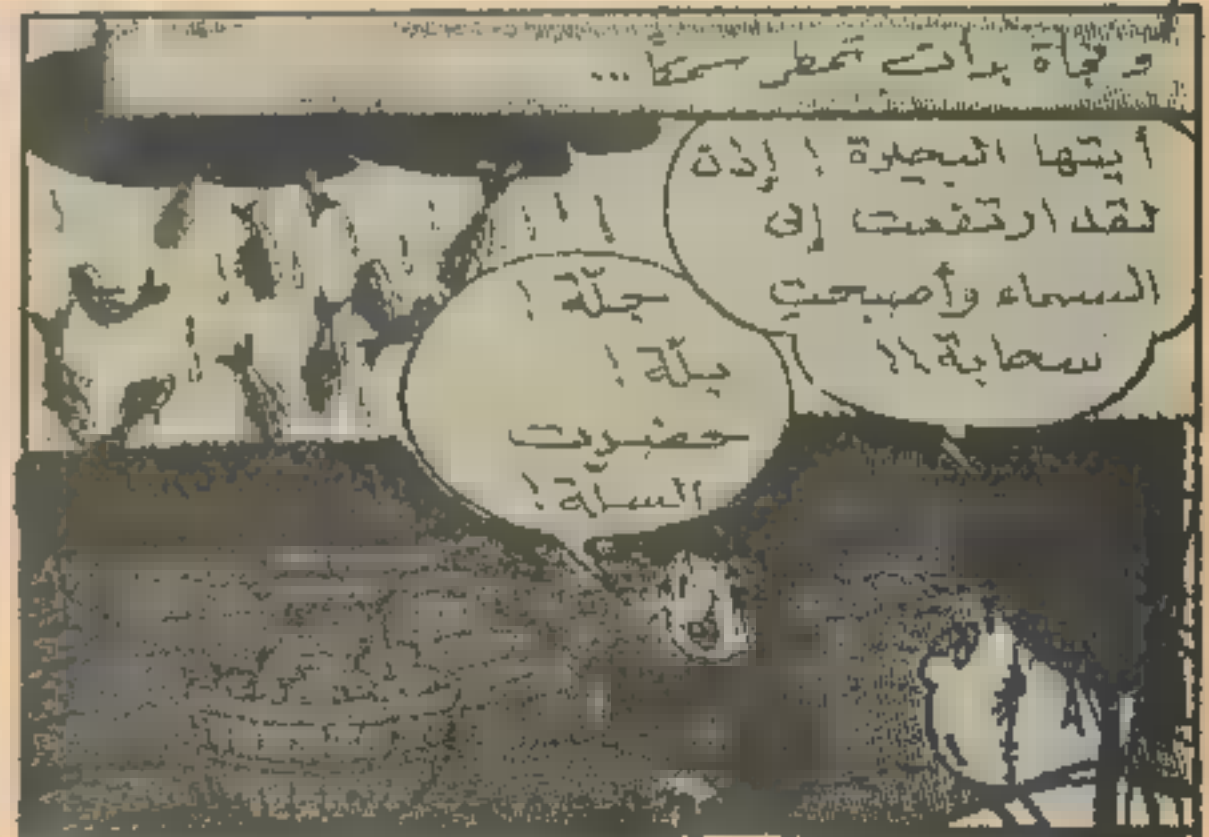 وفجأة بدأت تمطر سمكًا ...
أيتها البحيرة ! إذن
لقد ارتفعت إلى
السماء وأصبحت
سحابة !!
سلّة !
سلّة !
حضرت
السلة !